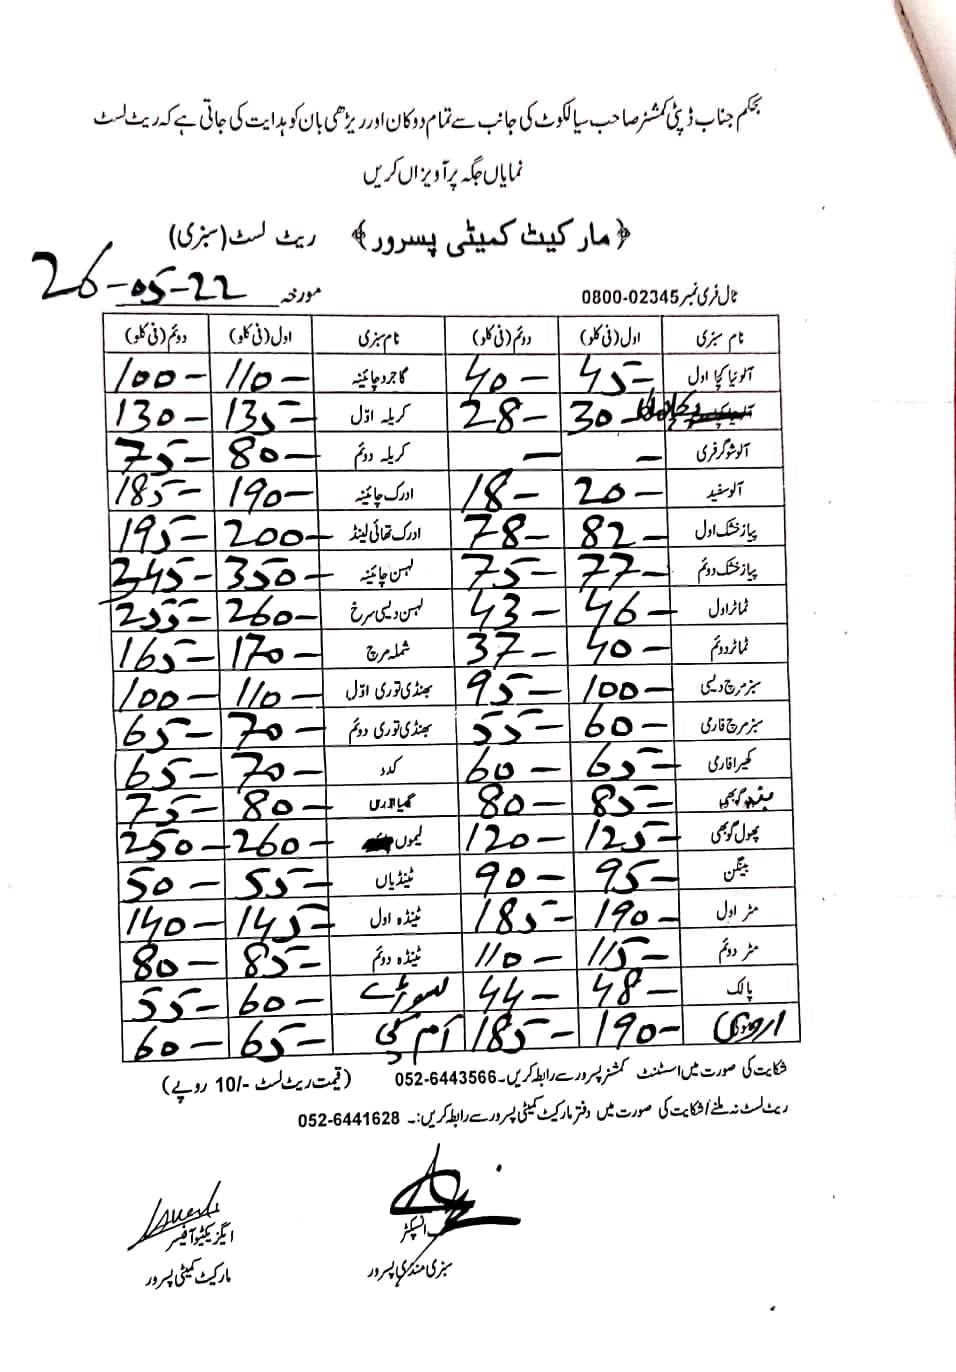 بحکم جناب ڈپٹی کمشنر صاحب سیالکوٹ کی جانب سے تمام دوکان اور ریڑھی بان کو ہدایت کی جاتی ہے کہ ریٹ لسٹ
نمایاں جگہ پر آویزاں کریں
﴿مارکیٹ کمیٹی پسرور﴾ ریٹ لسٹ (سبزی)
ٹال فری نمبر 0800-02345 مورخہ 26-05-22
نام سبزی اول (فی کلو) دوئم (فی کلو) نام سبزی اول (فی کلو) دوئم (فی کلو)
آلو نیا کچا اول 45- 40- گاجر چائینہ 110- 100-
30- 28- کریلہ اوّل 135- 130-
آلو شوگر فری - - کریلہ دوئم 80- 75-
آلو سفید 20- 18- ادرک چائینہ 190- 185-
پیاز خشک اول 82- 78- ادرک تھائی لینڈ 200- 195-
پیاز خشک دوئم 77- 75- لہسن چائینہ 350- 345-
ٹماٹر اول 46- 43- لہسن دیسی سرخ 260- 255-
ٹماٹر دوئم 40- 37- شملہ مرچ 170- 165-
سبز مرچ دیسی 100- 95- بھنڈی توری اوّل 110- 100-
سبز مرچ فارمی 60- 55- بھنڈی توری دوئم 70- 65-
کھیرا فارمی 65- 60- کدو 70- 65-
بند گوبھی 85- 80- 80- 75-
پھول گوبھی 125- 120- لیموں 260- 250-
بینگن 95- 90- ٹینڈیاں 55- 50-
مٹر اول 190- 185- ٹینڈہ اول 145- 140-
مٹر دوئم 115- 110- ٹینڈہ دوئم 85- 80-
پالک 48- 44- لسوڑے 60- 55-
اروی 190- 185- آم کچی 65- 60-
شکایت کی صورت میں اسسٹنٹ کمشنر پسرور سے رابطہ کریں۔ 052-6443566 (قیمت ریٹ لسٹ -/10 روپے)
ریٹ لسٹ نہ ملنے/شکایت کی صورت میں دفتر مارکیٹ کمیٹی پسرور سے رابطہ کریں:۔ 052-6441628
انسپکٹر
سبزی منڈی پسرور
ایگزیکٹو آفیسر
مارکیٹ کمیٹی پسرور